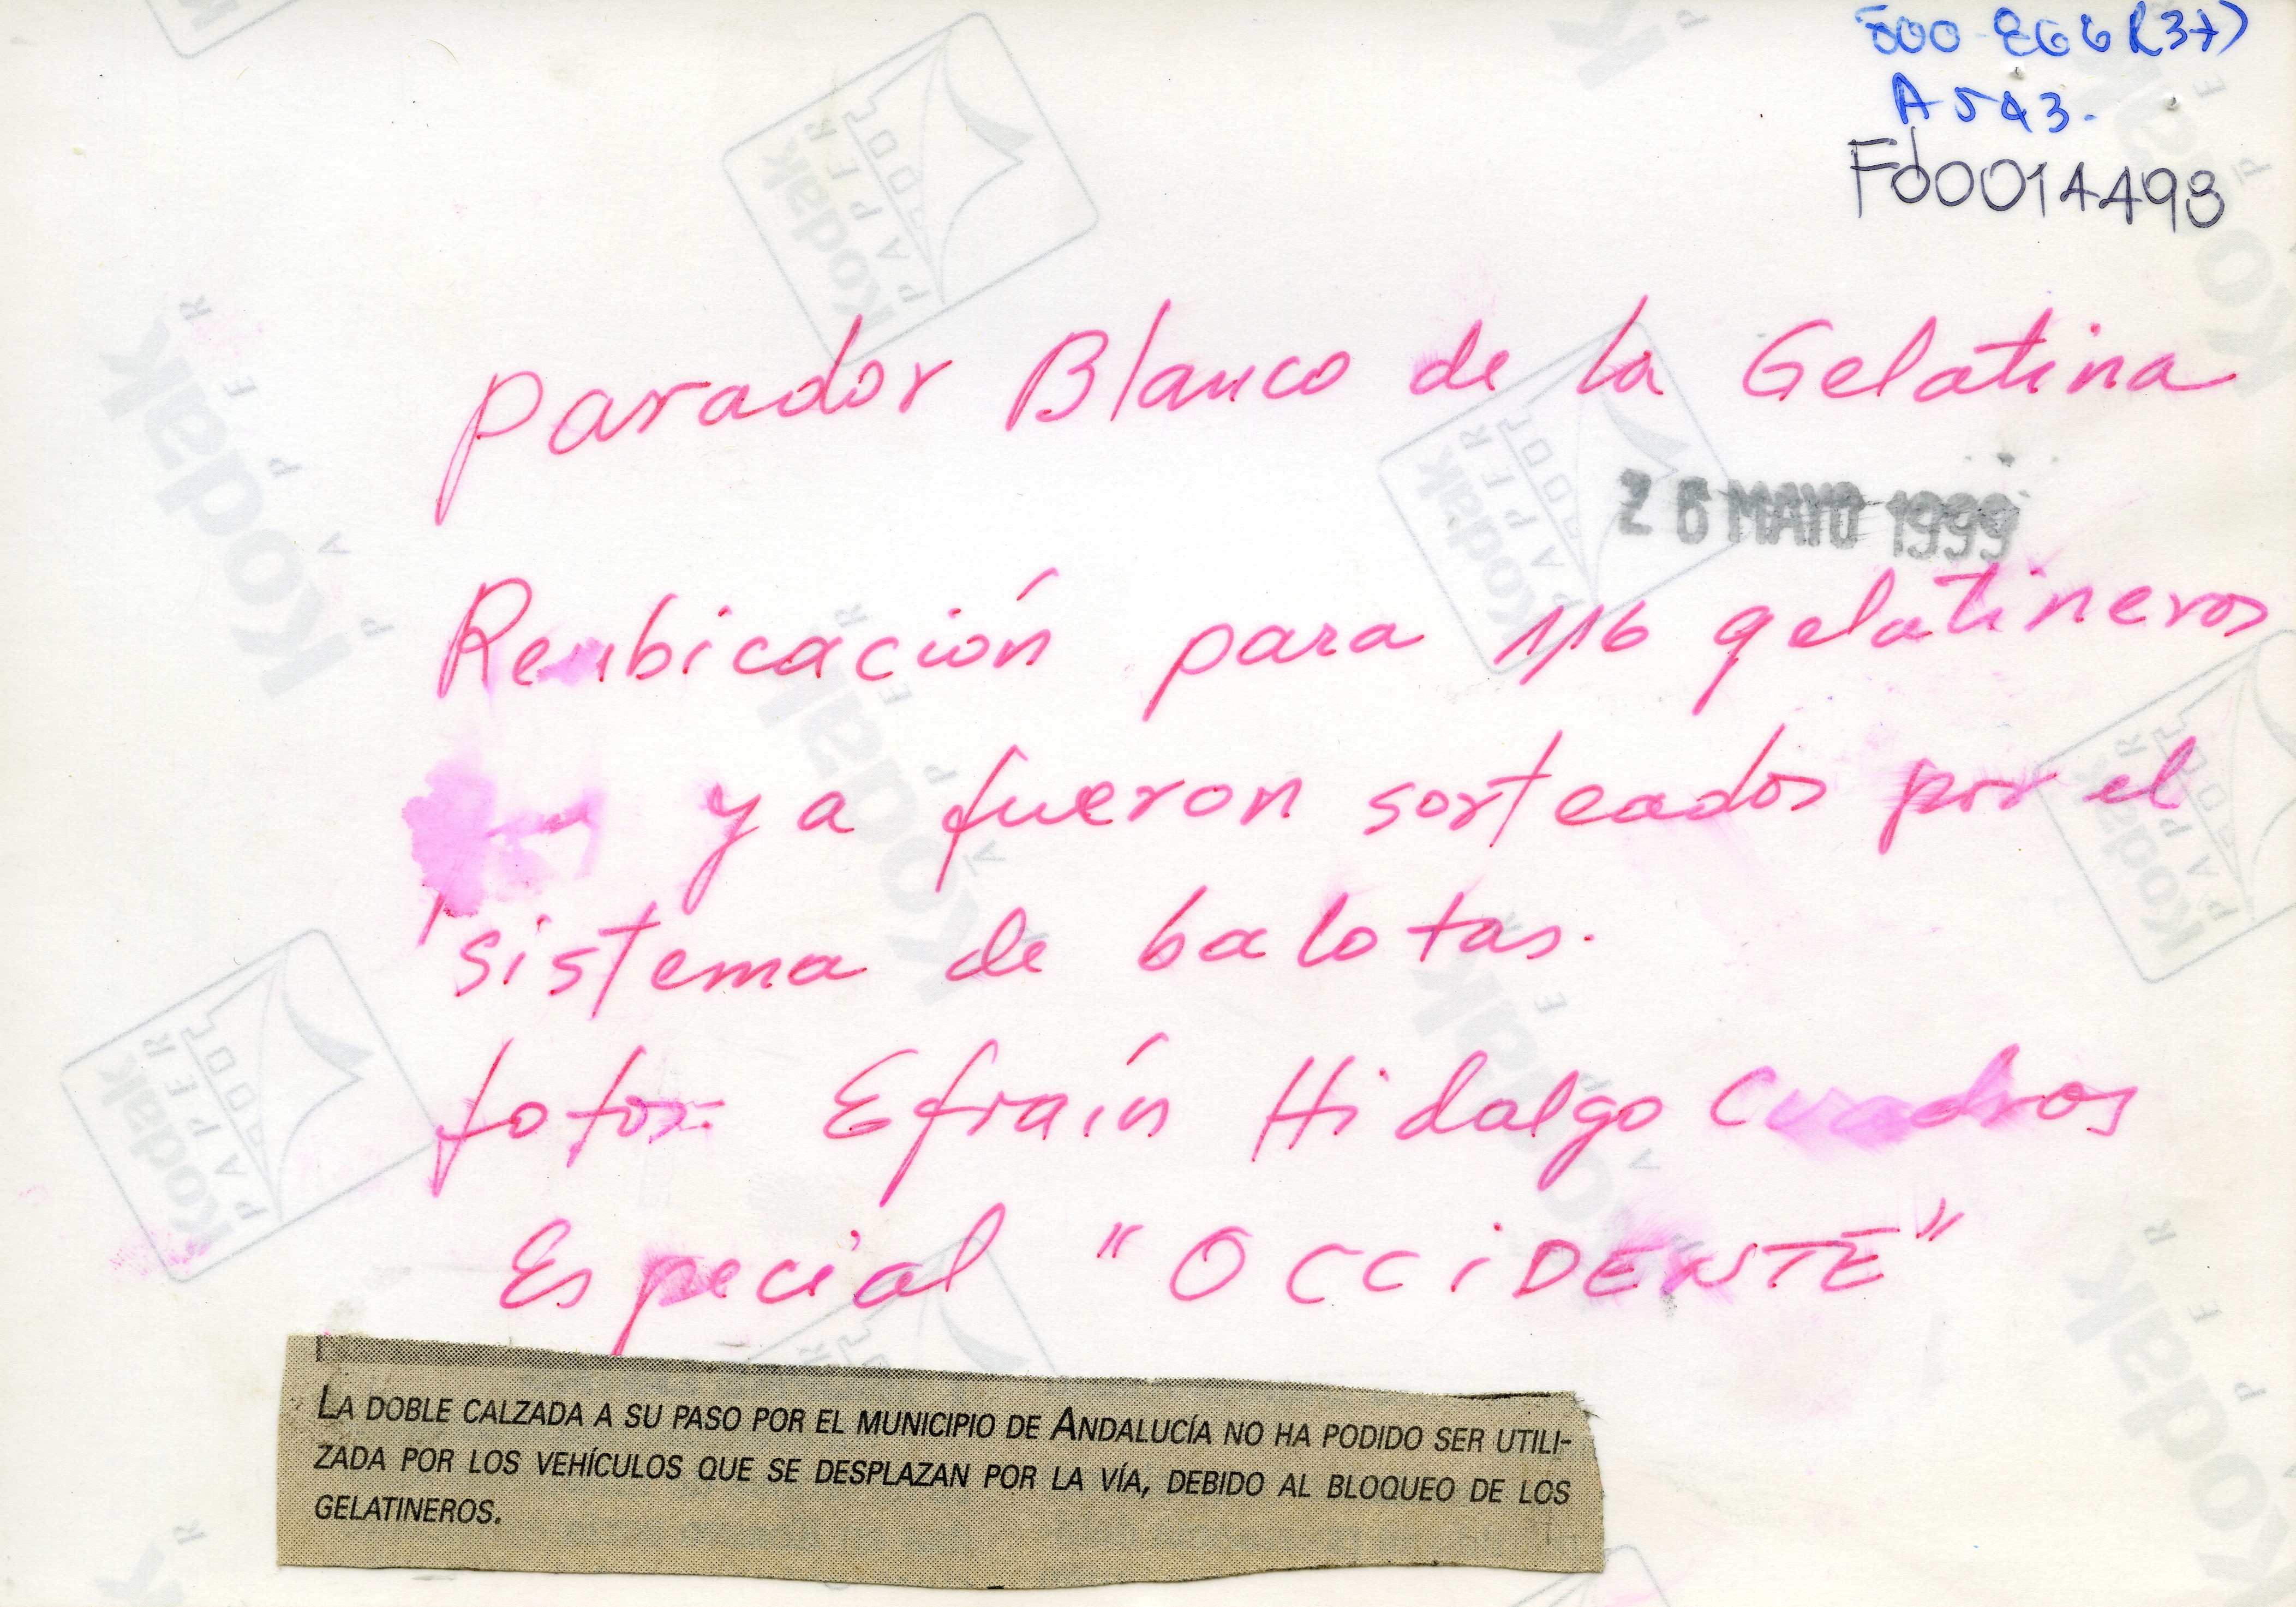 500-866(37)
A543.
Fd0014498
parador Blanco de la Gelatina
26 MAYO 1999
Reubicación para 116 gelatineros
ya fueron sorteados por el
sistema de balotas.
fotos: Efraín Hidalgo Cuadros
Especial "OCCiDENTE"
LA DOBLE CALZADA A SU PASO POR EL MUNICIPIO DE ANDALUCÍA NO HA PODIDO SER UTILI-
ZADA POR LOS VEHÍCULOS QUE SE DESPLAZAN POR LA VÍA, DEBIDO AL BLOQUEO DE LOS
GELATINEROS.
Kodak
PAPER
Kodak
PAPER
Kodak
PAPER
Kodak
PAPER